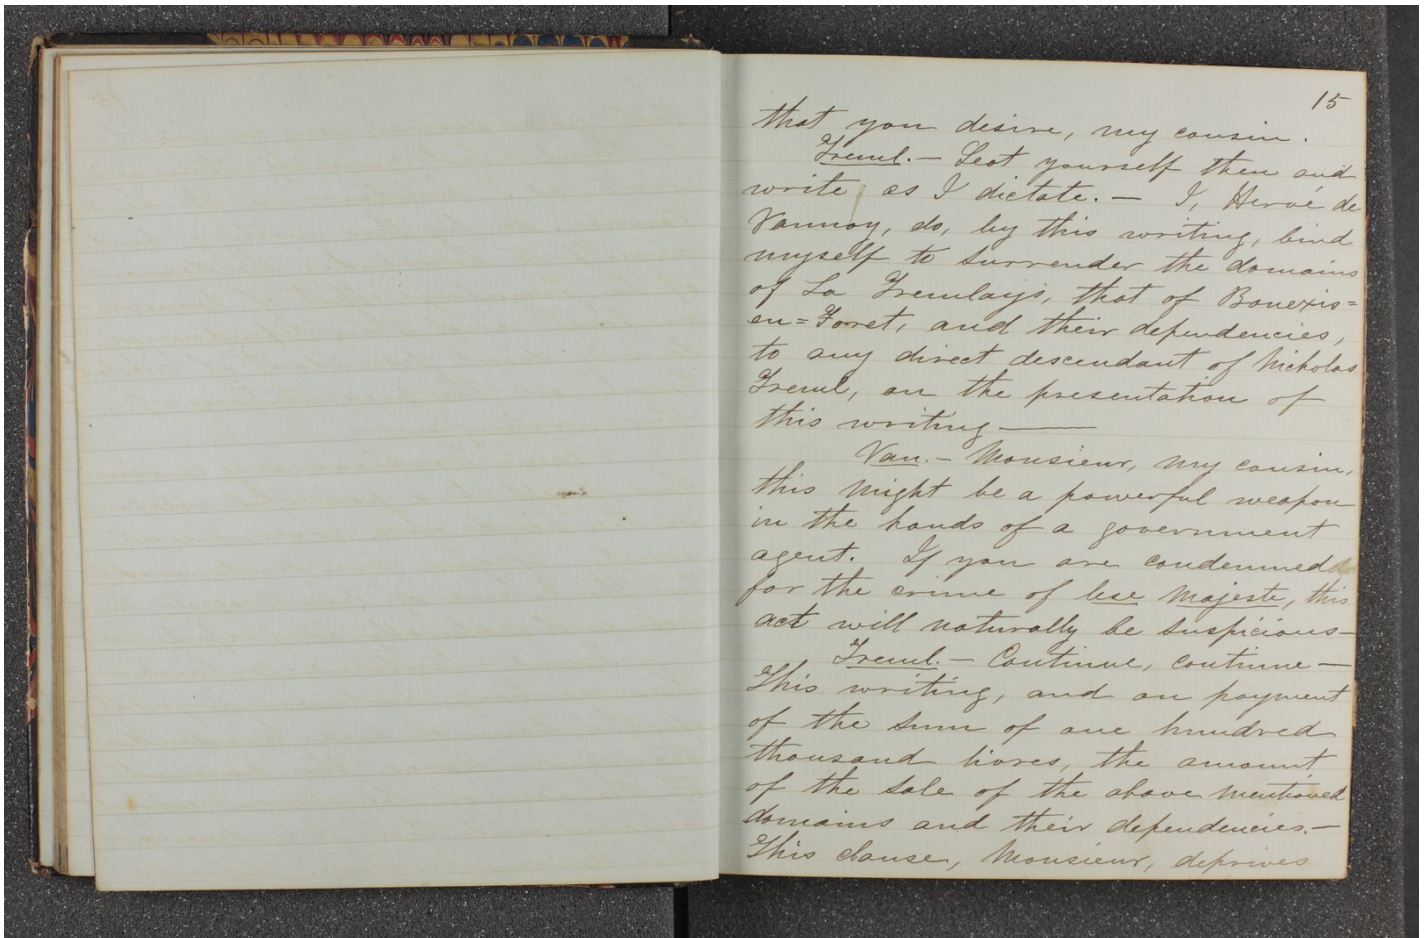 15
that you desire, my cousin.
Treml. — Seat yourself then and
write as I dictate. — I, Hervé de
Vannoy, do, by this writing, bind
myself to surrender the domains
of La Tremlays, that of Bouexis=
en=Forret, and their dependencies,
to any direct descendant of Nicholas
Treml, on the presentation of
this writing ———
Van. — Monsieur, my cousin,
this might be a powerful weapon
in the hands of a government
agent. If you are condemned
for the crime of lese Majeste, this
act will naturally be suspicious—
Treml. — Continue, continue —
This writing, and on payment
of the sum of one hundred
thousand livres, the amount
of the sale of the above mentioned
domains and their dependencies. —
This clause, Monsieur, deprives